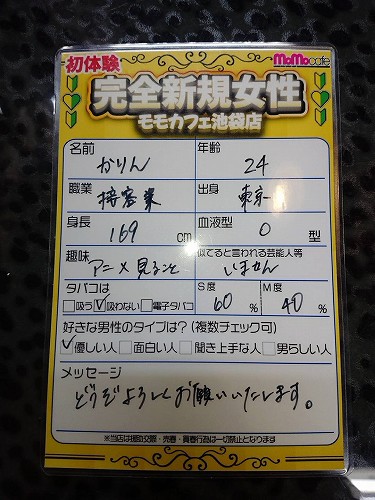 初体験 MoMocafe
完全新規女性
モモカフェ池袋店
名前 かりん 年齢 24
職業 接客業 出身 東京
身長 169 cm 血液型 O 型
趣味 アニメ見ること 似てると言われる芸能人等 いません
タバコは S度 M度
□吸う ☑吸わない □電子タバコ 60 % 40 %
好きな男性のタイプは?(複数チェック可)
☑優しい人 □面白い人 □聞き上手な人 □男らしい人
メッセージ
どうぞよろしくお願いいたします。
※当店は援助交際・売春・買春行為は一切禁止となります